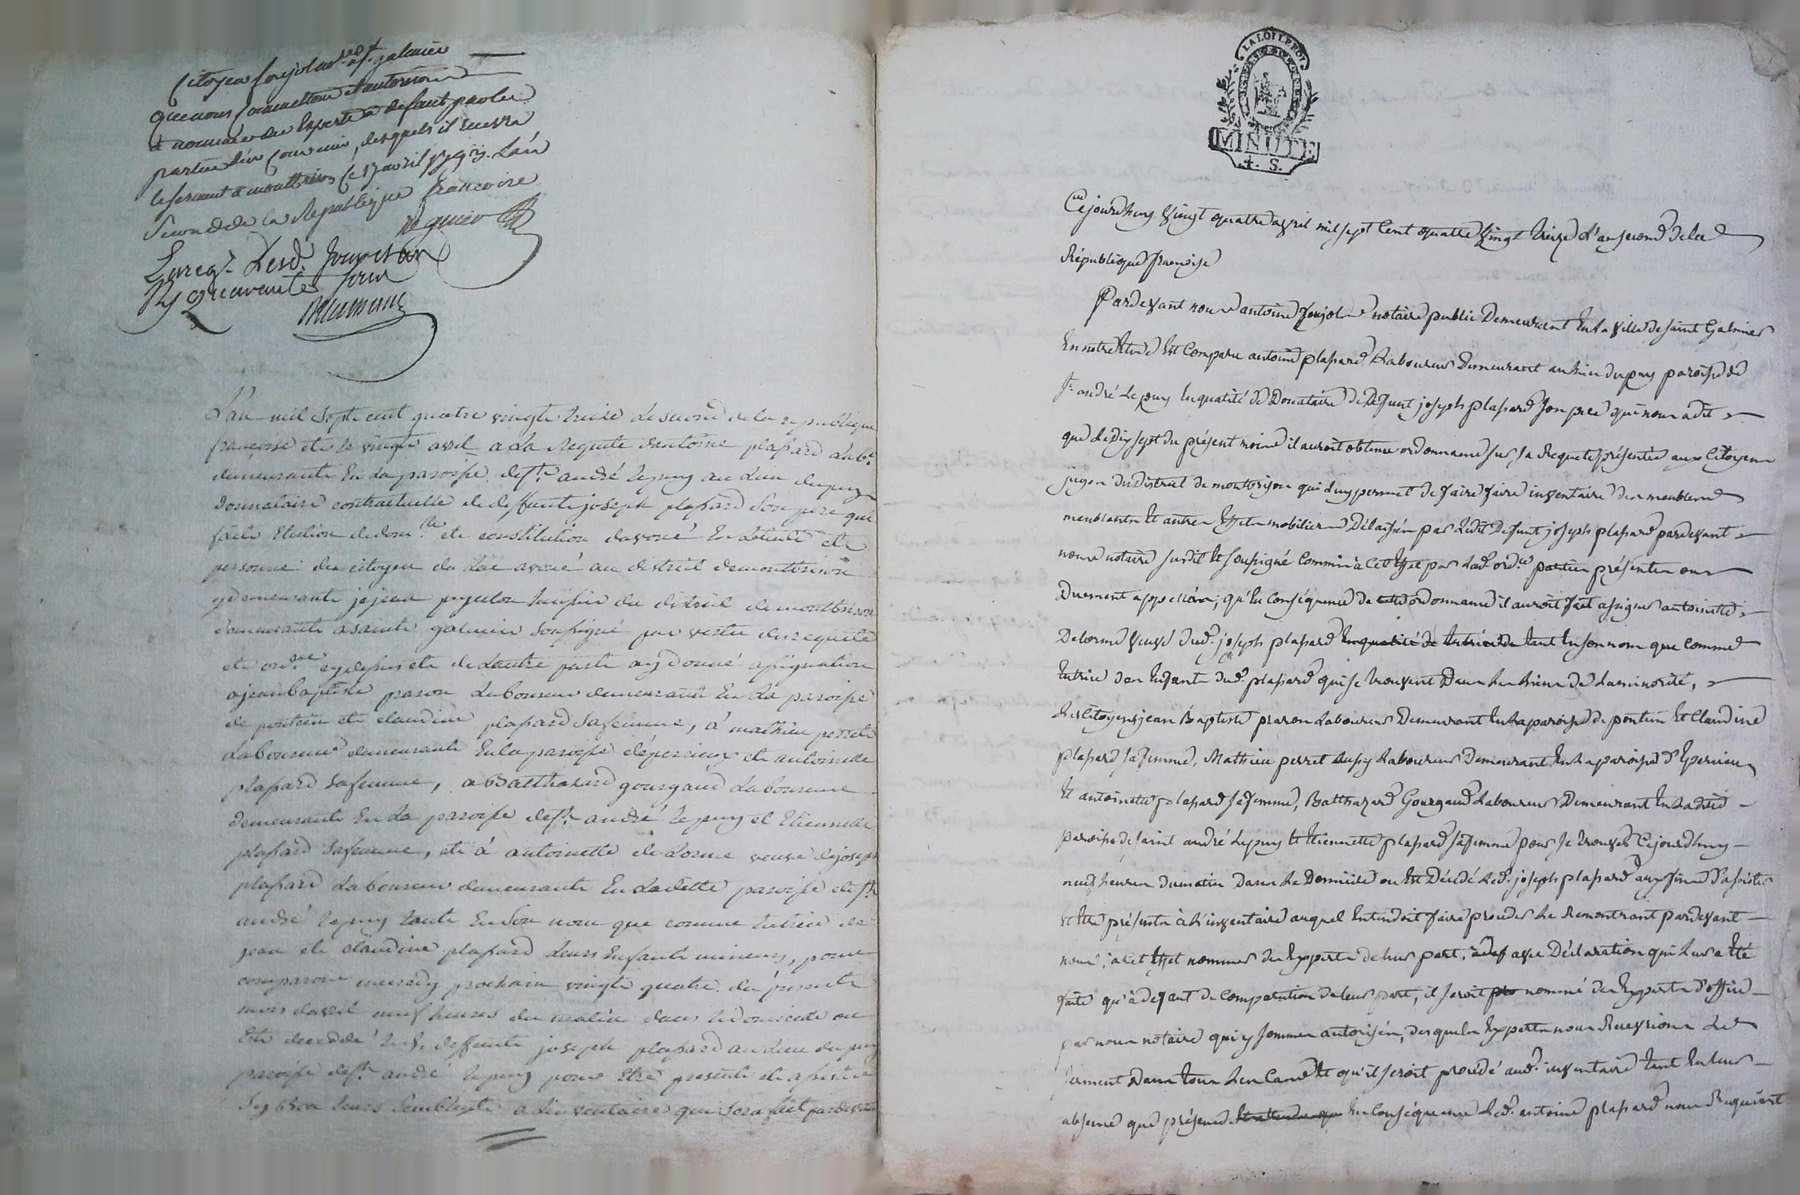 Citoyen foujols no.re a st galmier
que nous commettons et autorisons
a nommer des Experts a defaut par les
parties d'en Convenir, desquels il recevra
le serment a montbrison ce 17 avril 1793. L'an
Second de la Republique francoise
Enregr. Lesd. jour et an
Rs quarante sous
L'an mil sept cent quatre vingt treize Le second de la republique
francoise et le vingt avril a La Requete dantoine plassard Labr.
demeurante en La paroisse de st. andré le puy au Lieu du puy
donnataire contractuelle de deffunt joseph plassard son pere qui
faite Election de dom.lle et constitution davoué En Letude et
personne du citoyen du Lac avoué au district de montbrison
y demeurante je jean huissier du district de montbrison
demeurante a sainte galmier soussigné par vertu des requete
et ordce cydessus et de Lautre parte ay donné assignation
a jean baptiste parou Laboureur demeurante En La paroisse
de pontein et claudine plassard sa femme, a mathieu perret
Laboureur demeurante En La paroisse d'epercieux et antoinette
plassard sa femme, a Balthazard gourgaud Laboureur
demeurante En La paroisse de st. andré le puy et Etiennette
plassard sa femme, et a antoinette de Lorme veuve de joseph
plassard Laboureur demeurante En Ladette paroisse de st.
andré le puy tante En son nom que comme tutrice de
jean et claudine plassard Leurs Enfants mineurs, pour
comparoir mercredy prochain vingte quatre du presente
mois davril neuf heures du matin dans le domicile ou
Este deceddé le d. deffunte joseph plassard au Lieu du puy
paroisse de st. andré le puy pour Etre presente et assister
sy Bon Leurs semblent a Linventaire qui sera fait pardevant
MINUTE
4. S.
Cejourdhuy Vingt quatre avril mil sept Cent quatre Vingt treize L'an second de la
République françoise
Pardevant nous antoine foujols notaire public Demeurant En la ville de saint Galmier
En notre Etude Est Comparu antoine plassard Laboureur Demeurant au lieu du puy paroisse de
St. andré Le puy En qualité de Donataire de Défunt joseph plassard son pere qui nous a dit
que Le dix sept du présent mois il auroit obtenu ordonnance sur sa Requete présentée aux Citoyens
juges du district de montbrison qui Luy permet de faire faire inventaire des meubles
meublants Et autres Effets mobiliers Délaissés par Ledit Defunt joseph plassard pardevant
nous notaire susdit Et soussigné Commis à Cet Effet par Lad. ordce parties présentes ou
Duement appellées, qu'En Conséquence de cette ordonnance il auroit fait assigner antoinette
Delorme veuve dud. joseph plassard En qualité de tutrice de tant En son nom que comme
tutrice des Enfants dud. plassard qui se trouvent Dans Les Liens de La minorité,
Les Citoyens jean Baptiste parou Laboureur Demeurant En La paroisse de pontein Et Claudine
plassard sa femme, Mathieu perret aussy Laboureur Demeurant En La paroisse d'Epercieux
Et antoinette plassard sa femme, Balthazard Gourgaud Laboureur Demeurant En Ladite
paroisse de saint andré Le puy Et Etiennette plassard sa femme pour se trouver Cejourdhuy
neuf heures du matin Dans Le Domicile ou Est Décédé Led. joseph plassard aux fins d'assister
et Etre présents à L'inventaire auquel Entendoit faire proceder Le Remontrant pardevant
nous, a cet Effet nommer des Experts de leur part, avec Déclaration qui Leur a Eté
faite qu'à defaut de Comparution de leur part, il seroit nommé des Experts d'office
par nous notaire qui y sommes autorisés, desquels Experts nous Recevrions Le
serment Dans tous Les Cas Et qu'il seroit procédé aud. inventaire tant En leur
absence que présence Et attendu que En Conséquence Led. antoine plassard nous Requiert